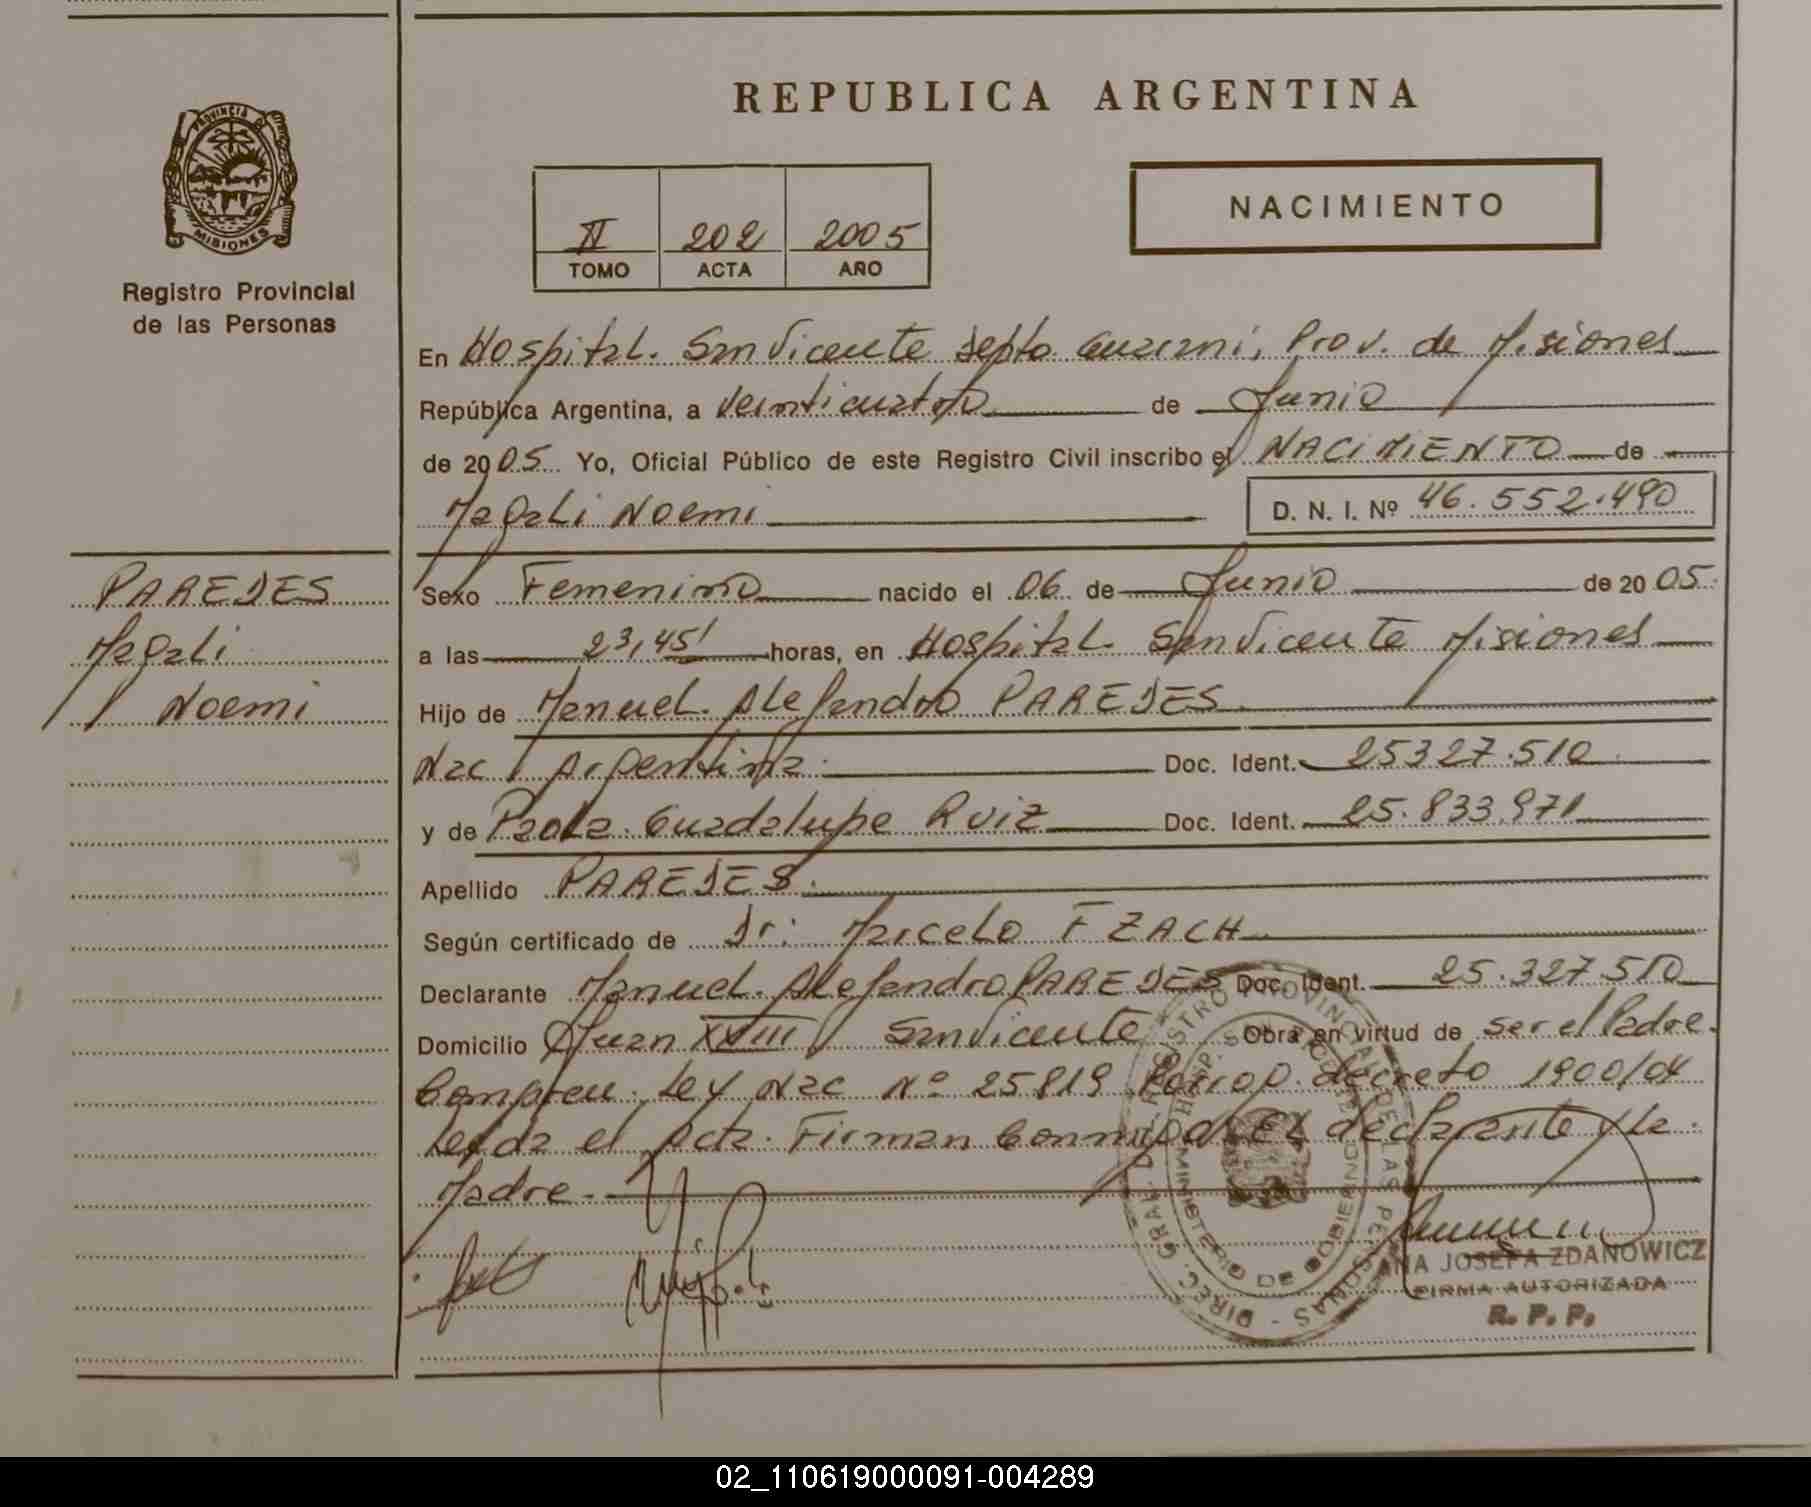 REPUBLICA ARGENTINA
PROVINCIA DE
MISIONES
Registro Provincial
de las Personas
II 202 2005
TOMO ACTA AÑO
NACIMIENTO
En Hospital San Vicente Depto Guarani, Prov. de Misiones
República Argentina, a Veinticuatro de Junio
de 2005 Yo, Oficial Público de este Registro Civil inscribo el NACIMIENTO de
Magali Noemi
D. N. I. Nº 46.552.490
PAREDES
Magali
Noemi
Sexo Femenino nacido el 06 de Junio de 2005
a las 23,45' horas, en Hospital San Vicente Misiones
Hijo de Manuel Alejandro PAREDES
Nac Argentina Doc. Ident. 25327.510
y de Paola Guadalupe Ruiz Doc. Ident. 25.833.971
Apellido PAREDES
Según certificado de Dr: Marcelo F ZACH
Declarante Manuel Alejandro PAREDES Doc. Ident. 25.327.510
Domicilio Juan XXIII San Vicente Obra en virtud de ser el Padre.
Compren. Ley Nac Nº 25819 decreto 1900/04
Leida el Acta. Firman Conmigo el declarante y la
Madre
DIREC. GRAL. REGISTRO PROVINCIAL DE LAS PERSONAS
MINISTERIO DE GOBIERNO
ANA JOSEFA ZDANOWICZ
FIRMA AUTORIZADA
R. P. P.
02_110619000091-004289